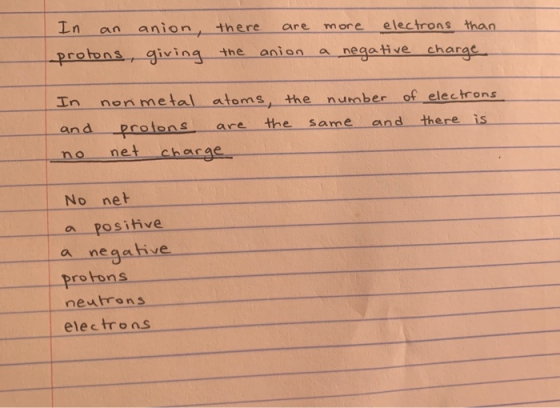 In an anion, there are more electrons than
protons, giving the anion a negative charge
In nonmetal atoms, the number of electrons
and protons are the same and there is
no net charge
No net
a positive
a negative
protons
neutrons
electrons